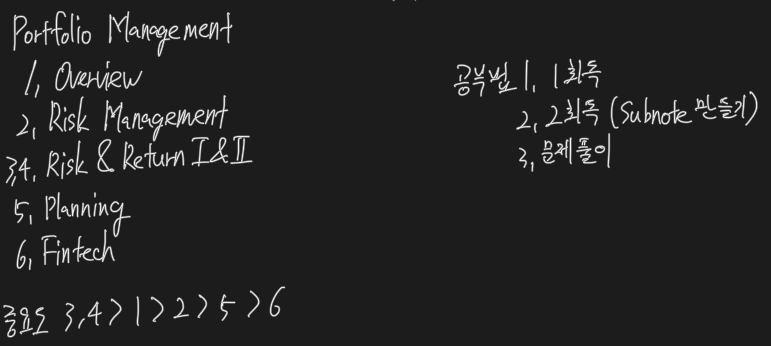 Portfolio Management
1, Overview
2, Risk Management
3,4, Risk & Return I & II
5, Planning
6, Fintech
중요도 3,4 > 1 > 2 > 5 > 6
공부법 1, 1회독
2, 2회독 (Subnote 만들기)
3, 문제풀이